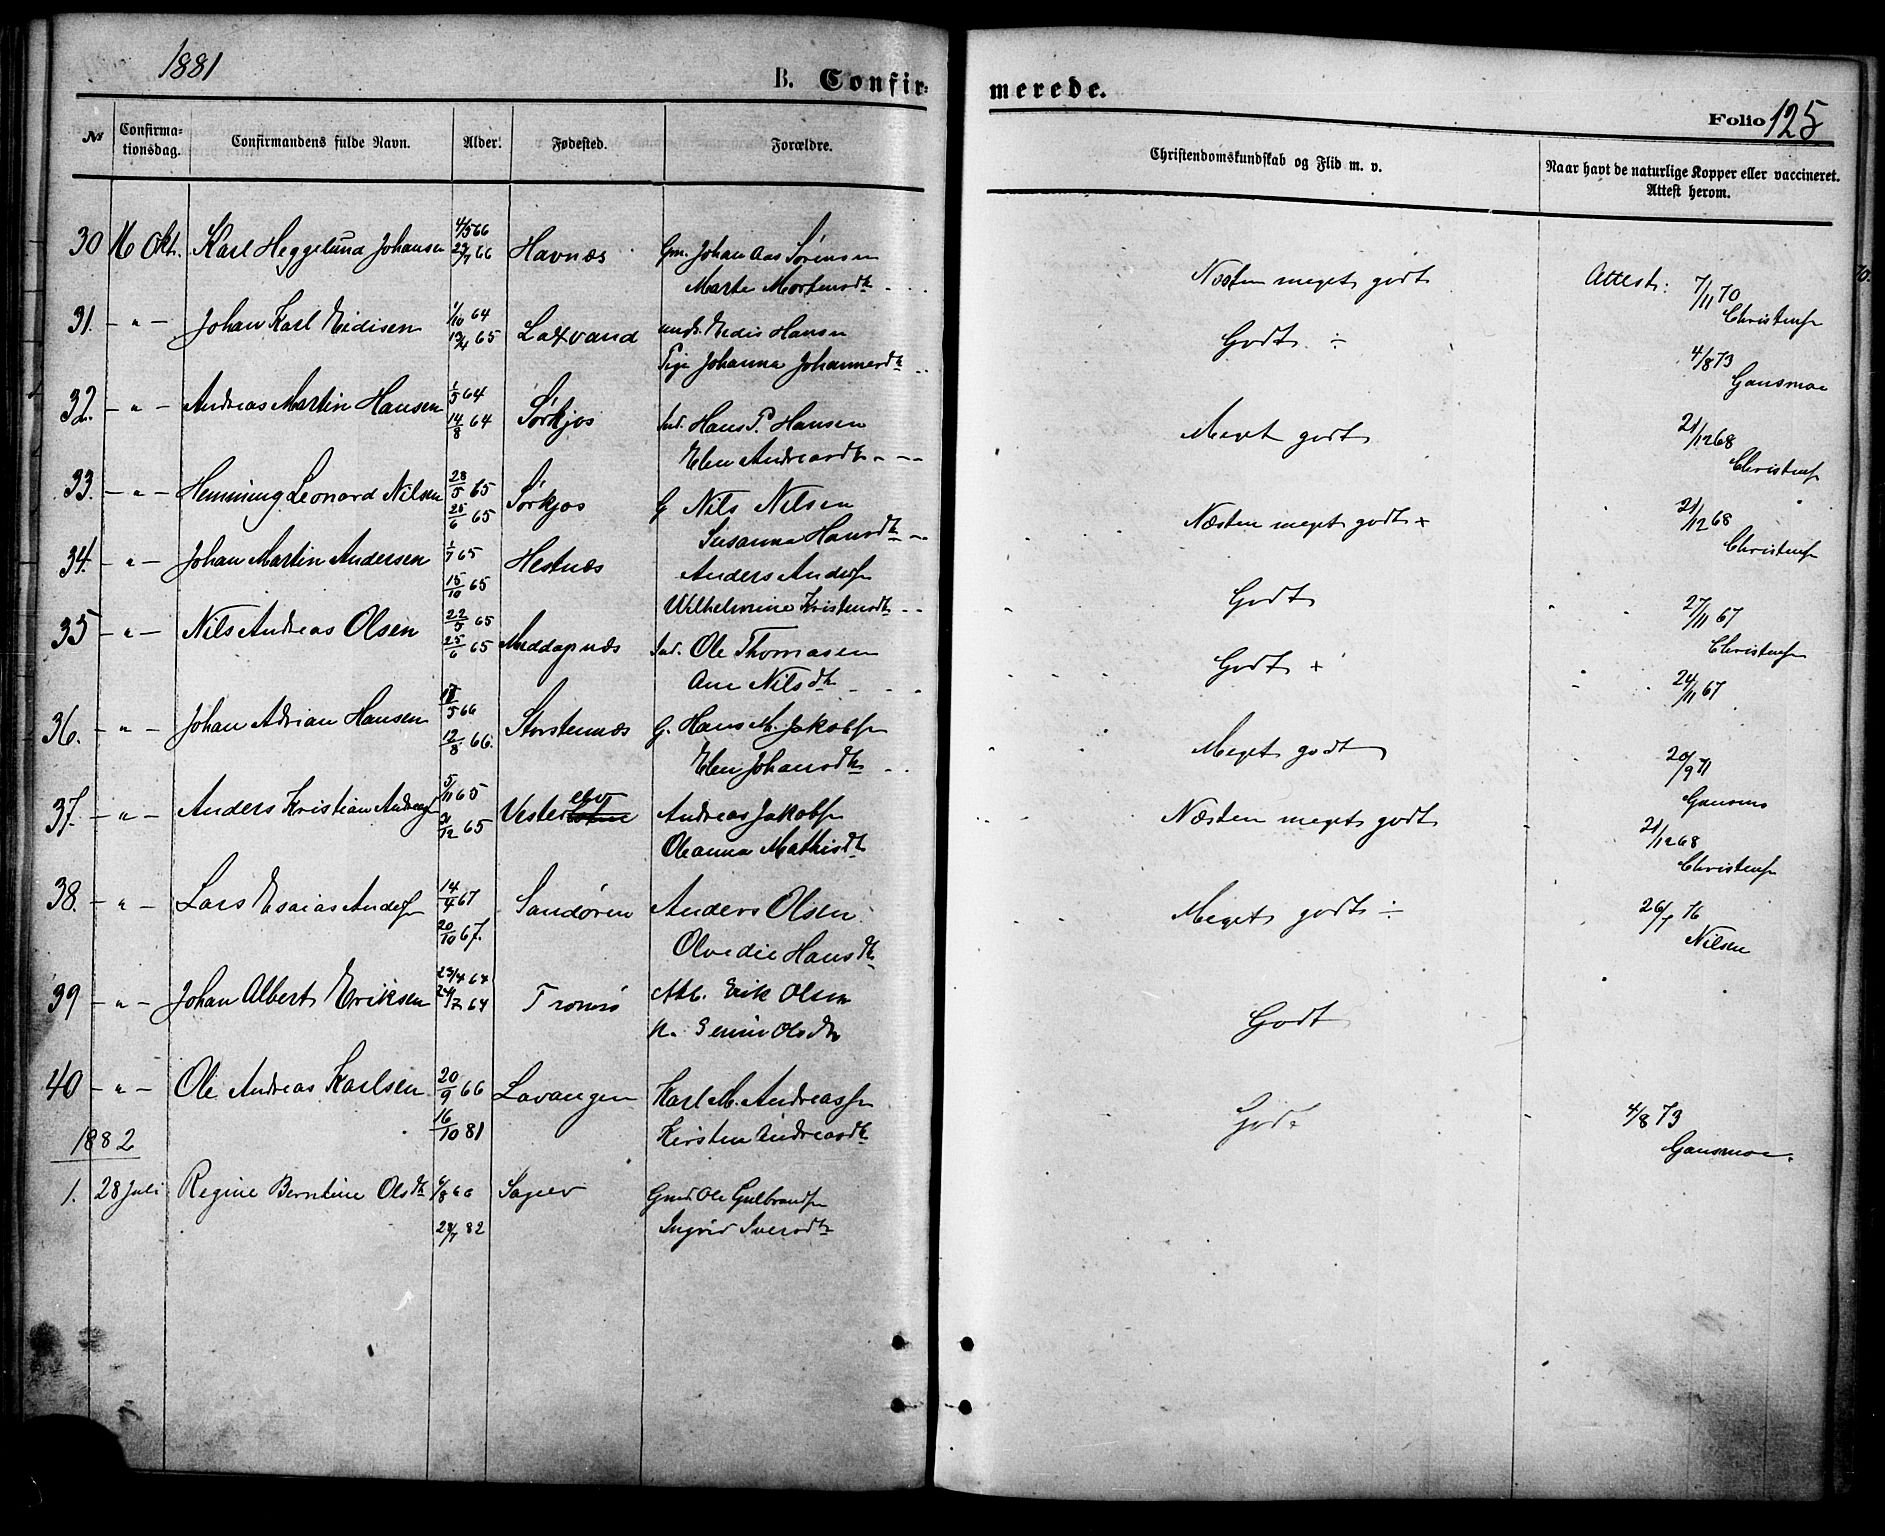 1881
B. Confirmerede.
Folio 125
No Confirmationsdag. Confirmandens fulde Navn. Alder. Fødested. Forældre. Christendomskundskab og Flid m. v. Naar havt de naturlige Kopper eller vaccineret. Attest herom.
30 16 Okt. Karl Heggelund Johansen 4/5 66 Havnæs Gm. Johan Aas Sørensen Næsten meget godt Attest: 7/11 70
29/7 66 Marte Mortensdtr Christensen
31. - " - Johan Karl Eidisen 1/10 64 Laxvand Eedis Hansen Godt ÷ 4/8 73
65 Pige Johanna Johannesdtr Gausmoe
32. - " - Andreas Martin Hansen 1/5 64 Sørkjos Ind. Hans P. Hansen Meget godt 21/12 68
14/8 64 Elen Andreasdtr Christensen
33. - " - Henning Leonard Nilsen 28/5 65 Sørkjos G Nils Nilsen Næsten meget godt + 21/12 68
25/6 65 Susanna Hansdtr Christensen
34. - " - Johan Martin Andersen 1/7 65 Hestnæs Anders Andersen Godt 27/11 67
15/10 65 Wilhelmine Kristensdtr Christensen
35 - " - Nils Andreas Olsen 22/5 65 Meddagsnæs Ind. Ole Thomasen Godt + 24/11 67
25/6 65 Ane Nilsdtr
36. - " - Johan Adrian Hansen 66 Storstennæs G. Hans M. Jakobsen Meget godt 20/9 71
12/8 66. Elen Johansdtr Gausmo
37. - " - Anders Kristian Andreasen 5/11 65 Vesterelv Andreas Jakobsen Næsten meget godt 21/12 68
31/12 65 Oleanna Mathisdtr Christensen
38. - " - Lars Esaias Andersen 14/4 67 Sandøren Anders Olsen Meget godt ÷ 26/7 76
20/10 67. Olvedie Hansdtr Nilsen
39 - " - Johan Albert Eriksen 23/4 64 Tromsø Erik Olsen Godt
24/7 64 Olsdtr
40 - " - Ole Andreas Karlsen 20/9 66 Lavangen Karl M. Andreassen Godt 4/8 73
16/10 81 Kirsten Andreasdtr Gausmoe.
1882
1. 28 Juli Regine Berntine Olsdtr 6/8 66 Sagelv Gmd Ole Gulbrandsen
28/7 82 Ingrid Iversdtr